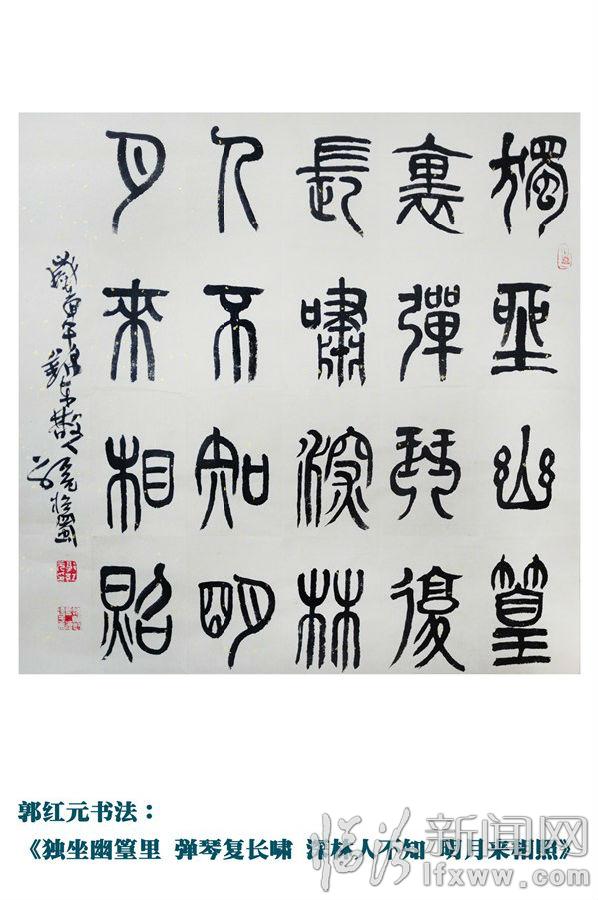 獨坐幽篁
裏彈琴復
長嘯深林
人不知明
月來相照
郭红元书法：
《独坐幽篁里 弹琴复长啸 深林人不知 明月来相照》
临汾新闻网
lfxww.com